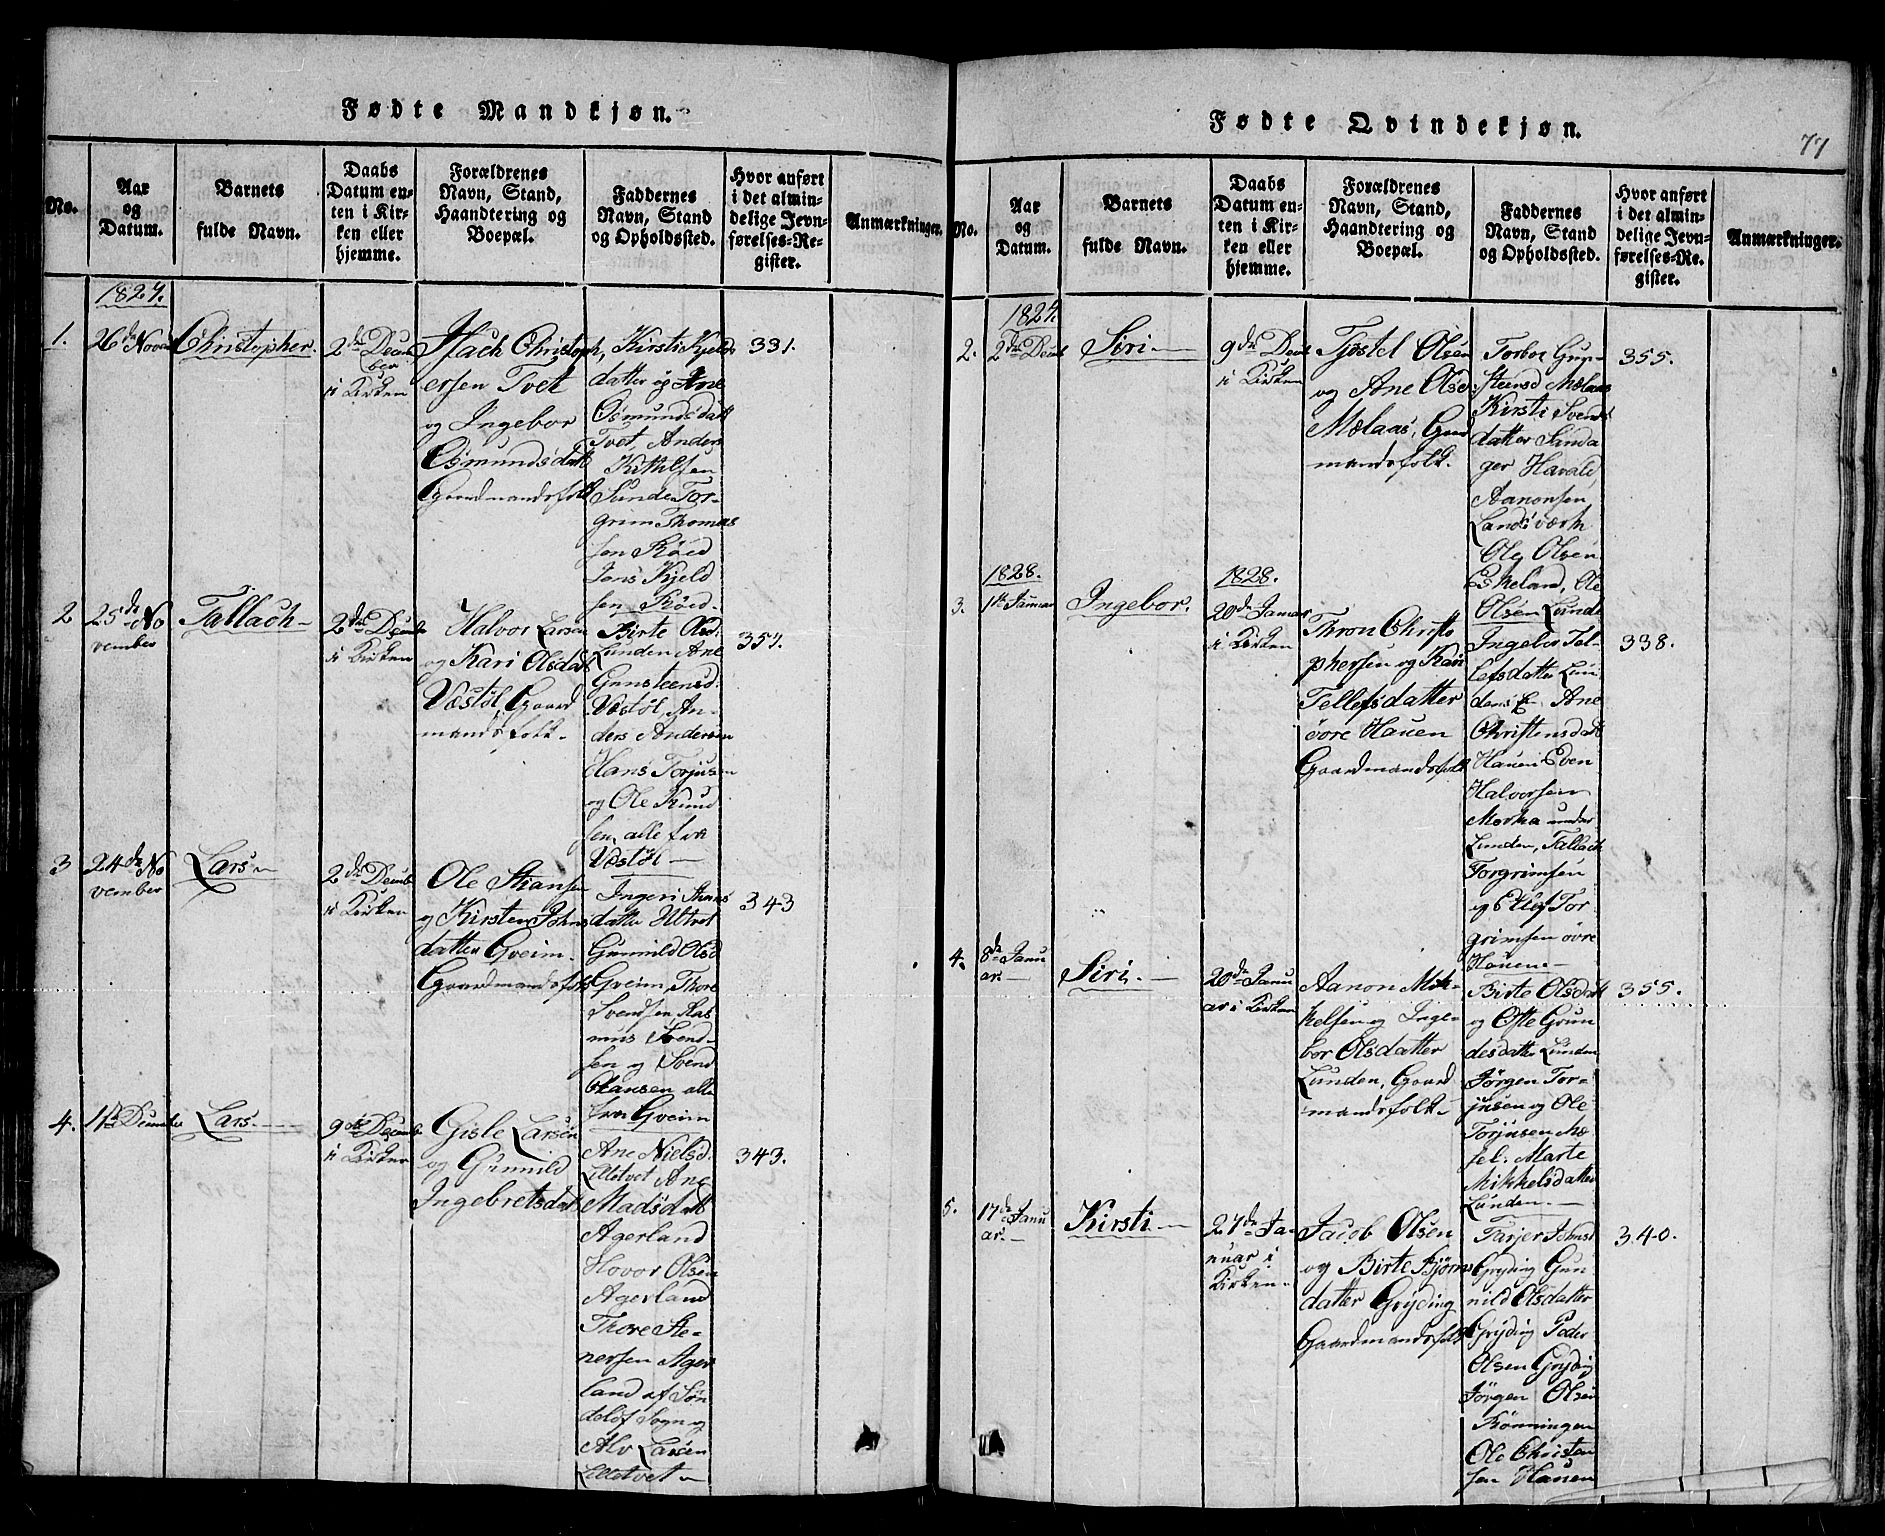 Fødte Mandkjøn.
No.
Aar
og
Datum.
Barnets
fulde Navn.
Daabs
Datum en-
ten i Kir-
ken eller
hjemme.
Forældrenes
Navn, Stand,
Haandtering og
Boepæl.
Faddernes
Navn, Stand
og Opholdssted.
Hvor anført
i det almin-
delige Jevn-
førelses-Re-
gister.
Anmærkninger.
1827.
1.
26de Novem
Christopher.
2den Decem
ber
i Kirken
Isach Christoph
ersen Tvet
og Ingebor
Osmundsdatt
Gaardmandsfolk
Kirsti Kjelds
datter og Ane
Osmundsdatt
Tvet, Anders
Kithelsen
Sunde Tor-
grim Thomas
sen Röed
Jens Kjeld
sen Röed
331.
2
25de No
vember
Tallach
2den Decemb
i Kirken
Halvor Larsen
og Kari Olsdatt
Væstöl, Gaard
mandsfolk.
Birte Olsd:
Lunden Ane
Gunsteensd:
Væstöl, An-
ders Andersen
Hans Torjusen
og Ole Knud
sen, alle fra
Væstöl
357.
3
24de No
vember
Lars
2den Decemb
i Kirken
Ole Stiansen
og Kirsten Johns
datter Gveim
Gaardmandsfolk
Ingeri Stians
datter Ultvet
Gunnild Olsd
Gveim, Thore
Svendsen, Ras
mus Svend-
sen og Svend
Hansen alle
fra Gveim
343
4.
1ste December
Lars
9de Decemb
i Kirken
Gisle Larsen
og Gunnild
Ingebretsdatt
Ane Nielsd.
Lilletvet Ane
Madsdatt
Agerland
Hovor Olsen
Agerland
Thore Ste-
nersen Ager
land af Sön
delöf Sogn og
Alv Larsen
Lilletvet
343.
Fødte Qvindekjøn.
77
No.
Aar
og
Datum.
Barnets
fulde Navn.
Daabs
Datum en-
ten i Kir-
ken eller
hjemme.
Forældrenes
Navn, Stand,
Haandtering og
Boepæl.
Faddernes
Navn, Stand
og Opholdssted.
Hvor anført
i det almin-
delige Jevn-
førelses-Re-
gister.
Anmærkninger.
1827.
2.
2den Decemb
Siri
9de Decemb
i Kirken
Tjöstel Olsen
og Ane Olsd:
Mælaas, Gaard
mandsfolk.
Torbor Gun-
steensd Mælaas
Kirsti Svends
datter Sanda
ger Havald
Aanonsen
Landsværk
Ole Olsen
Eskeland, Ole
Olsen Lunde
355.
1828.
3.
1ste Januar
Ingebor.
1828.
20de Januar
i Kirken
Thron Christo
phersen og Kari
Tellefsdatter
övre Hauen
Gaardmandsfolk
Ingebor Tel-
lefsdatter Lun
den Ane
Christensdatt
Hauen Even
Halvorsen
Morka under
Lunden, Tallach
Torgrimsen
og Ellef Tor
grimsen övre
Hauen
338.
4.
8de Janu
ar
Siri
20de Janu
ar i Kirken
Aanon Mik-
kelsen og Inge-
bor Olsdatter
Lunden, Gaard
mandsfolk
Birte Olsdatt
og Gun
desdatter Lunden
Jörgen Tor-
jusen og Ole
Torjusen Mæ
fel. Marte
Mikkelsdatter
Lunden
355.
5.
17de Janu
ar
Kirsti
27de Ja-
nuar i
Kirken
Jacob Olsen
og Birte Björns
datter Gryding
Gaardmandsfolk
Tarjer Johnsd
Gryding Gun
nild Olsdatter
Gryding Peder
Olsen Gryding
Jörgen Olsen
Rönningen
Ole Christen
sen Hauen
340.